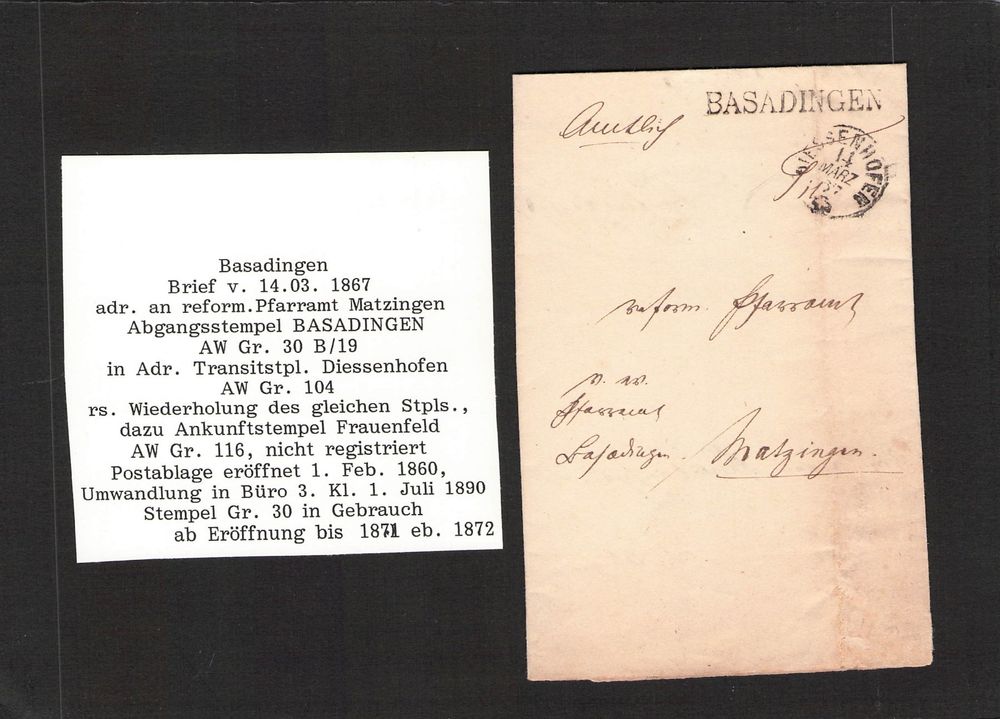 Basadingen
Brief v. 14.03. 1867
adr. an reform.Pfarramt Matzingen
Abgangsstempel BASADINGEN
AW Gr. 30 B/19
in Adr. Transitstpl. Diessenhofen
AW Gr. 104
rs. Wiederholung des gleichen Stpls.,
dazu Ankunftstempel Frauenfeld
AW Gr. 116, nicht registriert
Postablage eröffnet 1. Feb. 1860,
Umwandlung in Büro 3. Kl. 1. Juli 1890
Stempel Gr. 30 in Gebrauch
ab Eröffnung bis 1871 eb. 1872
BASADINGEN
Amtlich
DIESSENHOFEN
14
MÄRZ
67
reform. Pfarramt
Pfarramt
Basadingen. Matzingen.